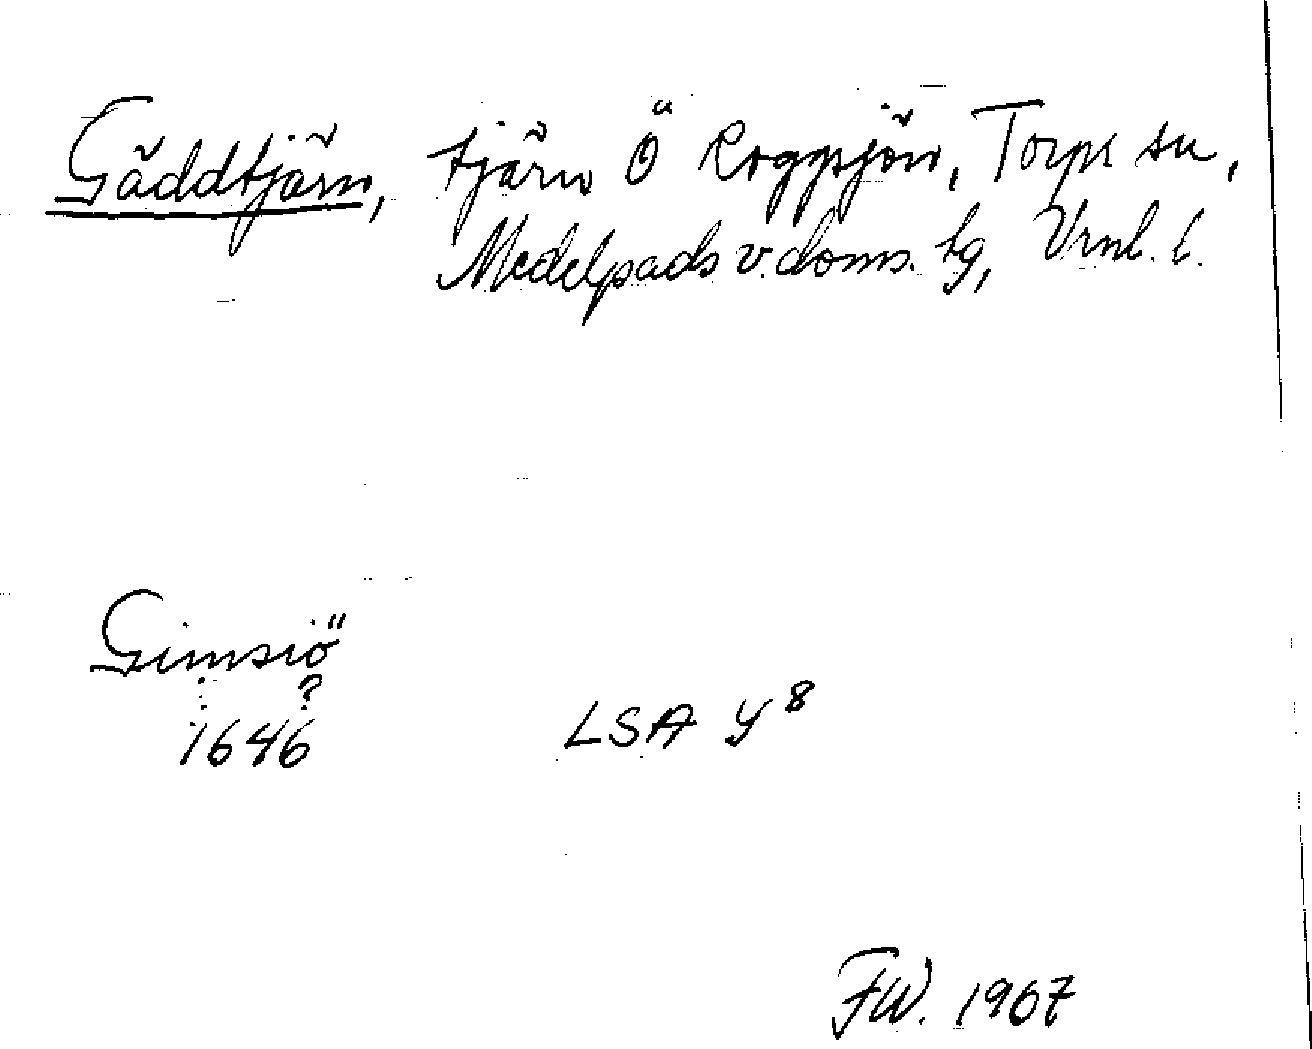 Gäddtjärn, tjärn Ö Roggsjön, Torps sn,
Medelpads v. doms. tg, Vrnl. l.
Gimsiö
?
1646 LSA Y 8
FW. 1967